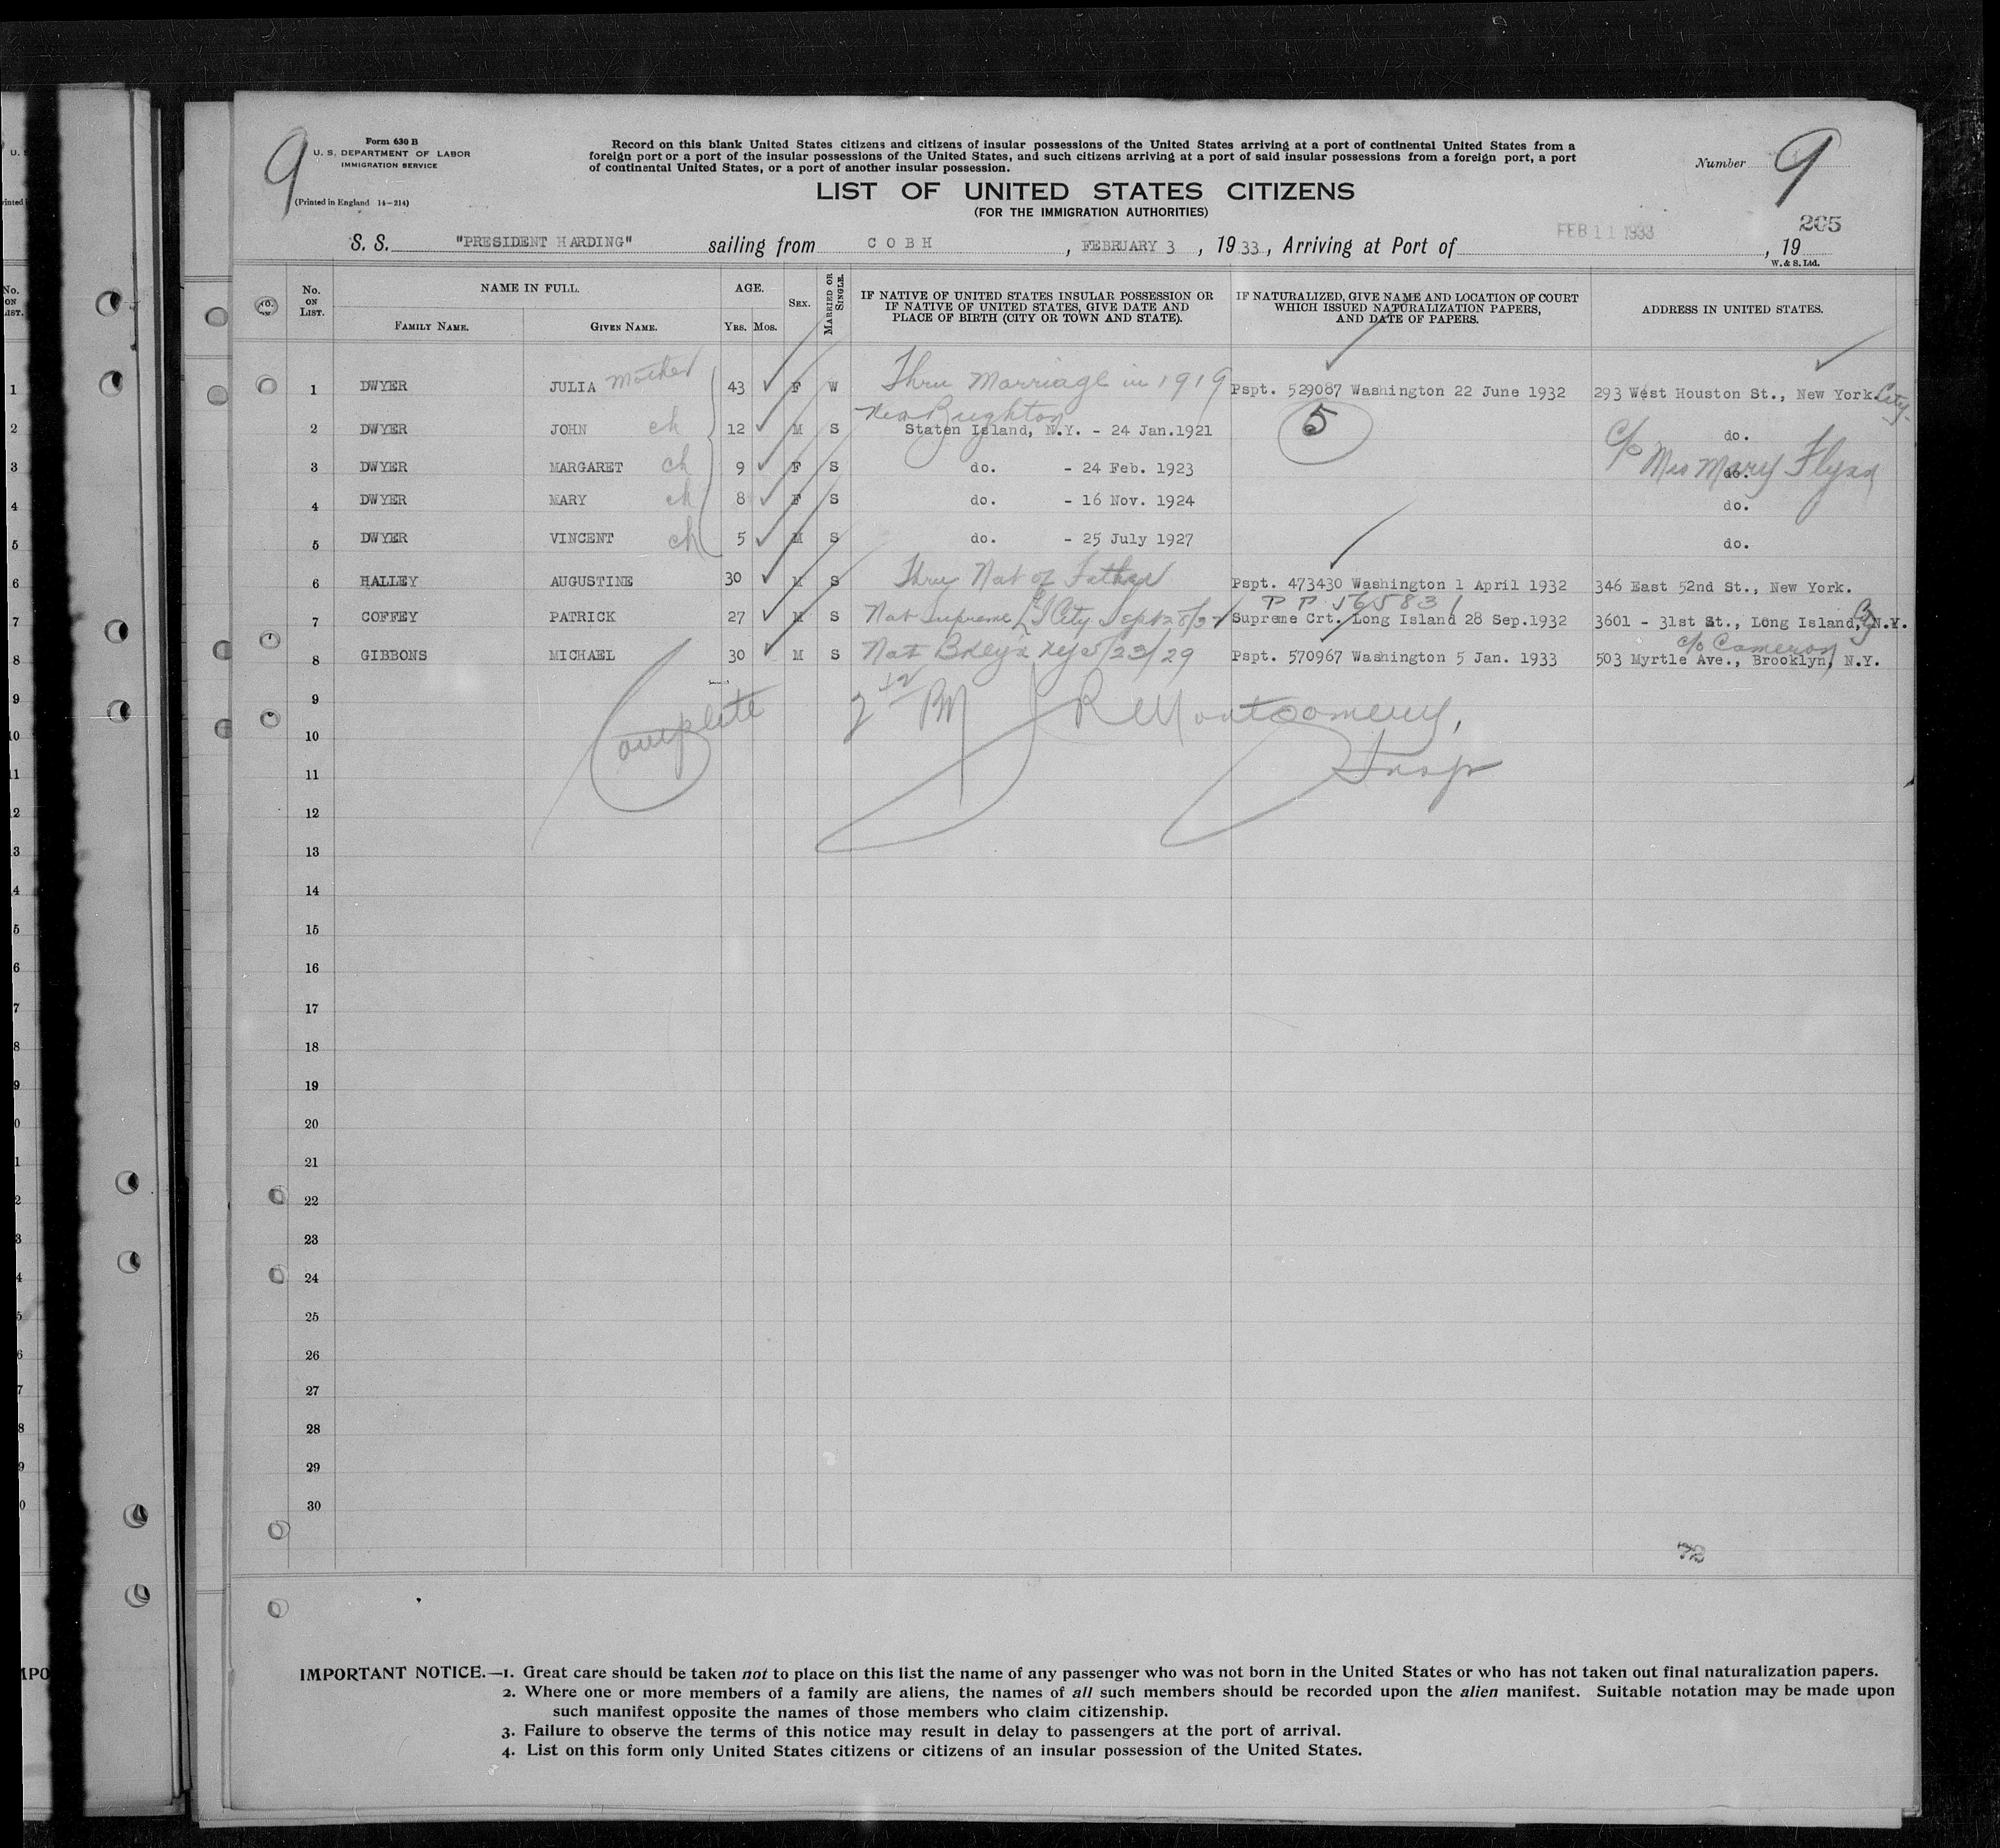 9
Form 630 B
U. S. DEPARTMENT OF LABOR
IMMIGRATION SERVICE
(Printed in England 14-214)
Record on this blank United States citizens and citizens of insular possessions of the United States arriving at a port of continental United States from a
foreign port or a port of the insular possessions of the United States, and such citizens arriving at a port of said insular possessions from a foreign port, a port
of continental United States, or a port of another insular possession.
Number 9
LIST OF UNITED STATES CITIZENS
(FOR THE IMMIGRATION AUTHORITIES)
265
FEB 11 1933
S. S. "PRESIDENT HARDING" sailing from COBH, FEBRUARY 3, 1933, Arriving at Port of , 19
W. & S. Ltd.
No. ON LIST. NAME IN FULL. AGE. SEX. MARRIED OR SINGLE. IF NATIVE OF UNITED STATES INSULAR POSSESSION OR IF NATIVE OF UNITED STATES, GIVE DATE AND PLACE OF BIRTH (CITY OR TOWN AND STATE). IF NATURALIZED, GIVE NAME AND LOCATION OF COURT WHICH ISSUED NATURALIZATION PAPERS, AND DATE OF PAPERS. ADDRESS IN UNITED STATES.
FAMILY NAME. GIVEN NAME. Yrs. Mos.
1 DWYER JULIA Mother 43 F W Thru Marriage in 1919 Pspt. 529087 Washington 22 June 1932 293 West Houston St., New York. City.
New Brighton
2 DWYER JOHN ch 12 M S Staten Island, N.Y. - 24 Jan.1921 5 do.
c/o Mrs Mary Flynn
3 DWYER MARGARET ch 9 F S do. - 24 Feb. 1923 do.
4 DWYER MARY ch 8 F S do. - 16 Nov. 1924 do.
5 DWYER VINCENT ch 5 M S do. - 25 July 1927 do.
6 HALLEY AUGUSTINE 30 M S Thru Nat of Father Pspt. 473430 Washington 1 April 1932 346 East 52nd St., New York.
P P 56583
7 COFFEY PATRICK 27 M S Nat Supreme L I City Sept 28/32 Supreme Crt. Long Island 28 Sep.1932 3601 - 31st St., Long Island, City N.Y.
c/o Cameron
8 GIBBONS MICHAEL 30 M S Nat Bklyn NY 5/23/29 Pspt. 570967 Washington 5 Jan. 1933 503 Myrtle Ave., Brooklyn, N.Y.
9
Complete J R Montgomery,
10
Insp
11
12
13
14
15
16
17
18
19
20
21
22
23
24
25
26
27
28
29
30
72
IMPORTANT NOTICE.—1. Great care should be taken not to place on this list the name of any passenger who was not born in the United States or who has not taken out final naturalization papers.
2. Where one or more members of a family are aliens, the names of all such members should be recorded upon the alien manifest. Suitable notation may be made upon
such manifest opposite the names of those members who claim citizenship.
3. Failure to observe the terms of this notice may result in delay to passengers at the port of arrival.
4. List on this form only United States citizens or citizens of an insular possession of the United States.